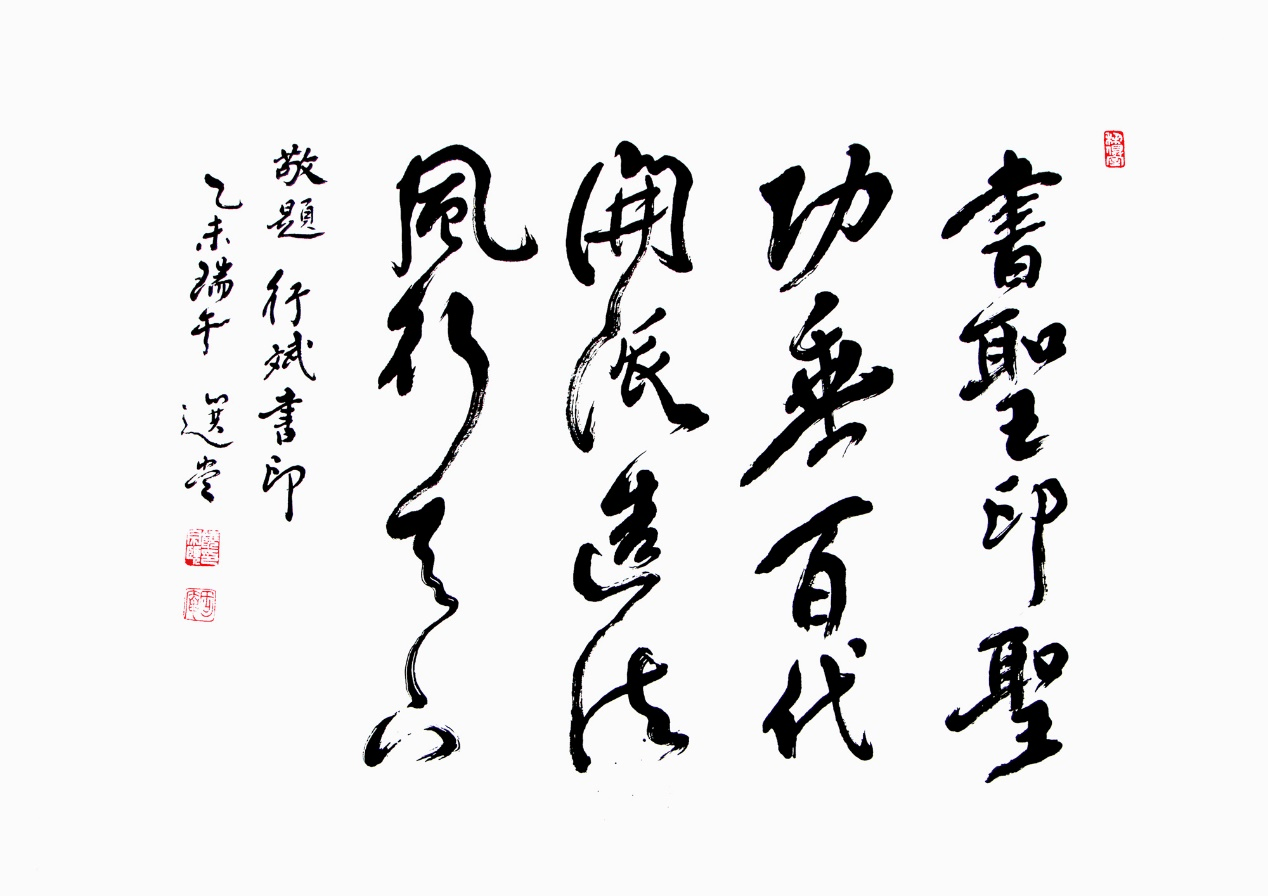 書聖印聖
功乘百代
開派造法
風行天下
敬題 行斌書印
乙未瑞午 選堂